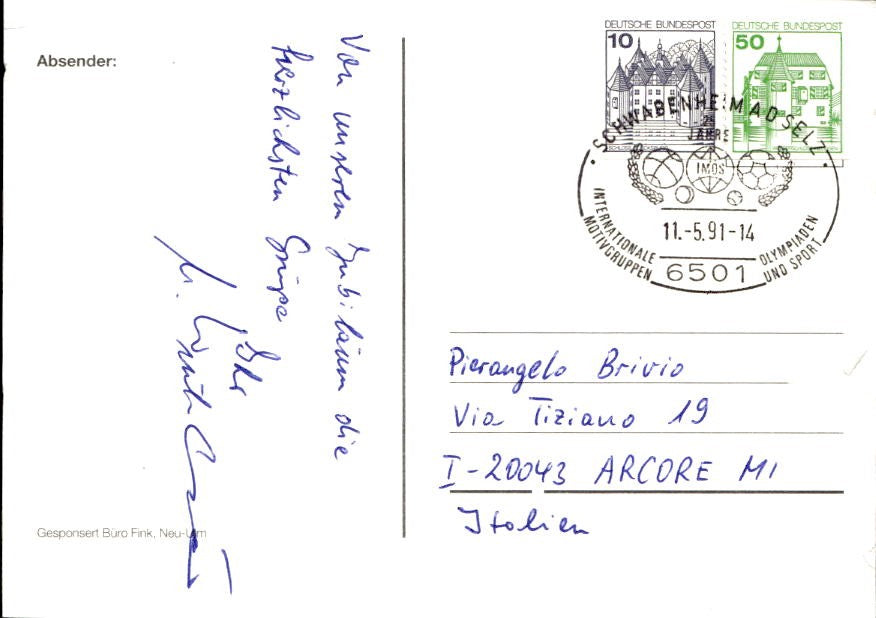 Absender:
Von unserem Jubiläum die
herzlichsten Grüße
Ihr
Gesponsert Büro Fink, Neu-Ulm
DEUTSCHE BUNDESPOST
10
DEUTSCHE BUNDESPOST
50
SCHWABENHEIM A D SELZ
25
JAHRE
IMOS
INTERNATIONALE
MOTIVGRUPPEN
11.-5.91-14
OLYMPIADEN
UND SPORT
6501
Pierangelo Brivio
Via Tiziano 19
I-20043 ARCORE MI
Italien